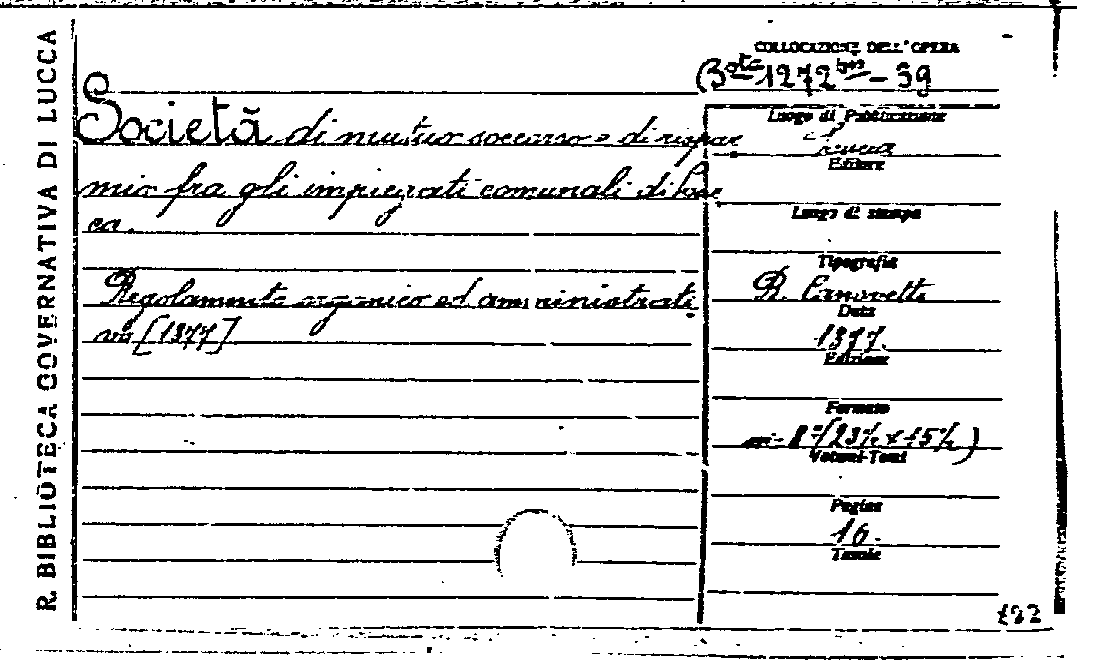 R. BIBLIOTECA GOVERNATIVA DI LUCCA
COLLOCAZIONE DELL'OPERA
B.ta 1272 bis - 39
Società di mutuo soccorso e di rispar
mio fra gli impiegati comunali di Luc
ca.
Regolamento organico ed amministrati
vo [1877]
Luogo di Pubblicazione
Lucca
Editore
Luogo di stampa
Tipografia
B. Canovetti
Data
1877.
Edizione
Formato
in-8° (23½ x 15½)
Volumi-Tomi
Pagine
16.
Tavole